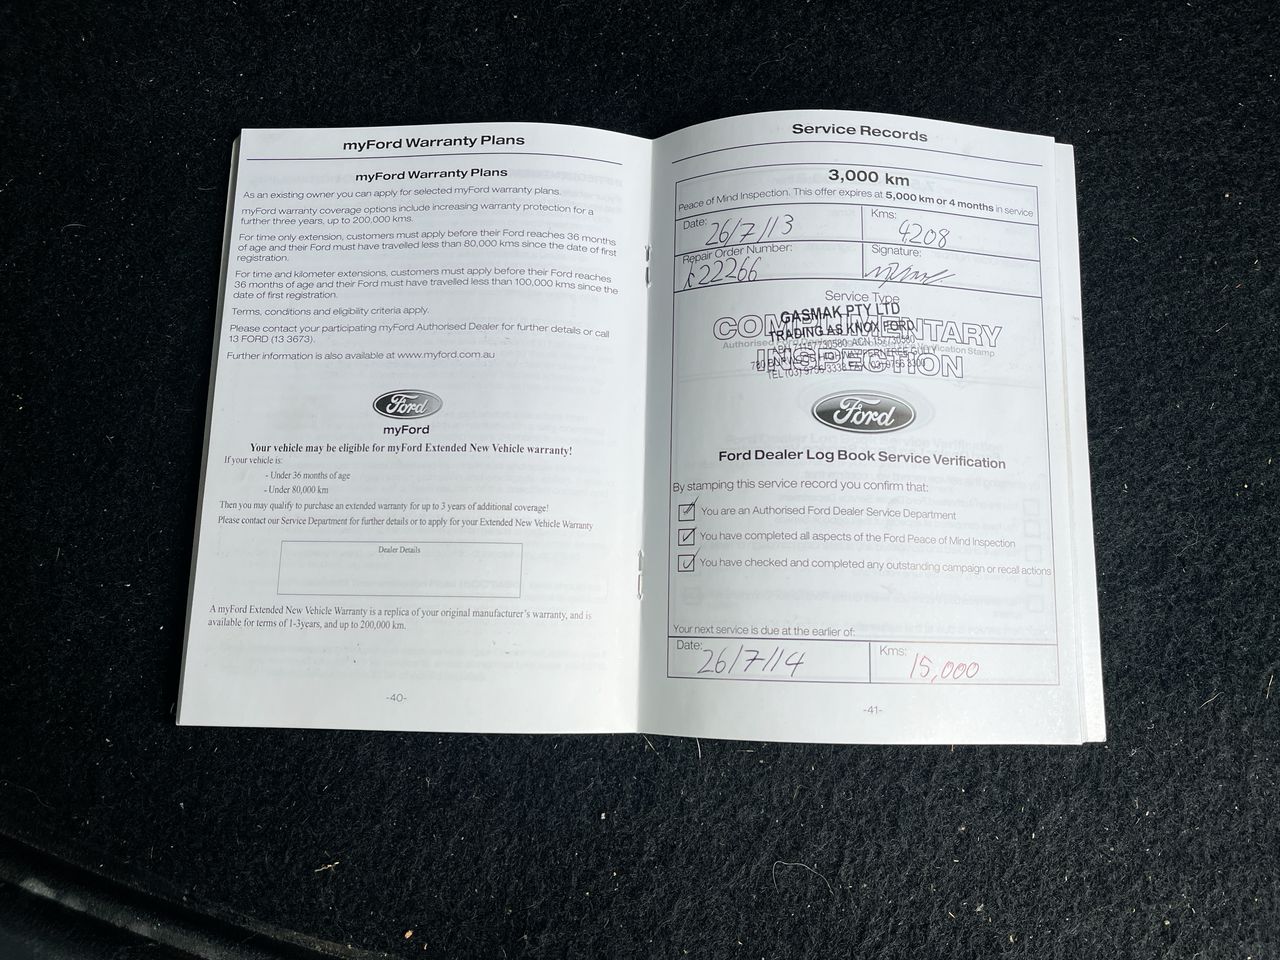 myFord Warranty Plans
myFord Warranty Plans
As an existing owner you can apply for selected myFord warranty plans.
myFord warranty coverage options include increasing warranty protection for a
further three years, up to 200,000 kms.
For time only extension, customers must apply before their Ford reaches 36 months
of age and their Ford must have travelled less than 80,000 kms since the date of first
registration.
For time and kilometer extensions, customers must apply before their Ford reaches
36 months of age and their Ford must have travelled less than 100,000 kms since the
date of first registration.
Terms, conditions and eligibility criteria apply.
Please contact your participating myFord Authorised Dealer for further details or call
13 FORD (13 3673).
Further information is also available at www.myford.com.au
Ford
myFord
Your vehicle may be eligible for myFord Extended New Vehicle warranty!
If your vehicle is:
- Under 36 months of age
- Under 80,000 km
Then you may qualify to purchase an extended warranty for up to 3 years of additional coverage!
Please contact our Service Department for further details or to apply for your Extended New Vehicle Warranty
Dealer Details
A myFord Extended New Vehicle Warranty is a replica of your original manufacturer's warranty, and is
available for terms of 1-3years, and up to 200,000 km.
-40-
Service Records
3,000 km
Peace of Mind Inspection. This offer expires at 5,000 km or 4 months in service
Date: 26/7/13 Kms: 4208
Repair Order Number: Signature:
22266
Service Type
GASMAK PTY LTD
COMPLIMENTARY
TRADING AS KNOX FORD
Authorised
Verification Stamp
INSPECTION
TEL (03)
Ford
Ford Dealer Log Book Service Verification
By stamping this service record you confirm that:
You are an Authorised Ford Dealer Service Department
You have completed all aspects of the Ford Peace of Mind Inspection
You have checked and completed any outstanding campaign or recall actions
Your next service is due at the earlier of:
Date: 26/7/14 Kms: 15,000
-41-